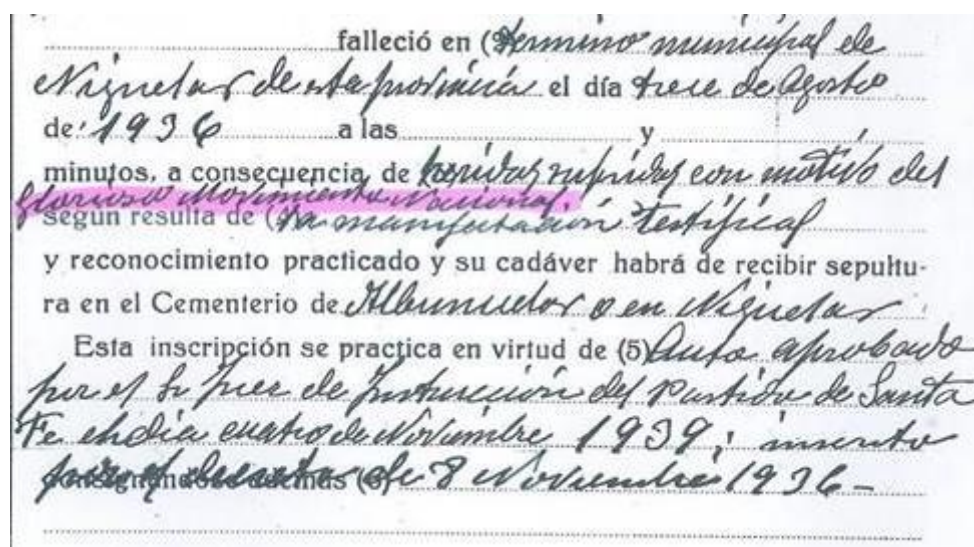 falleció en (término municipal de
Niguelas de esta provincia el día trece de Agosto
de 1936 a las y
minutos, a consecuencia de heridas sufridas con motivo del
glorioso Movimiento Nacional.
según resulta de (la manifestación testifical
y reconocimiento practicado y su cadáver habrá de recibir sepultu-
ra en el Cementerio de Albunuelas o en Niguelas
Esta inscripción se practica en virtud de (5) Auto aprobado
por el Sr Juez de Instrucción del Partido de Santa
Fe el dia cuatro de Noviembre 1939; inserto
consignándose además (6) de 8 Noviembre 1936 -